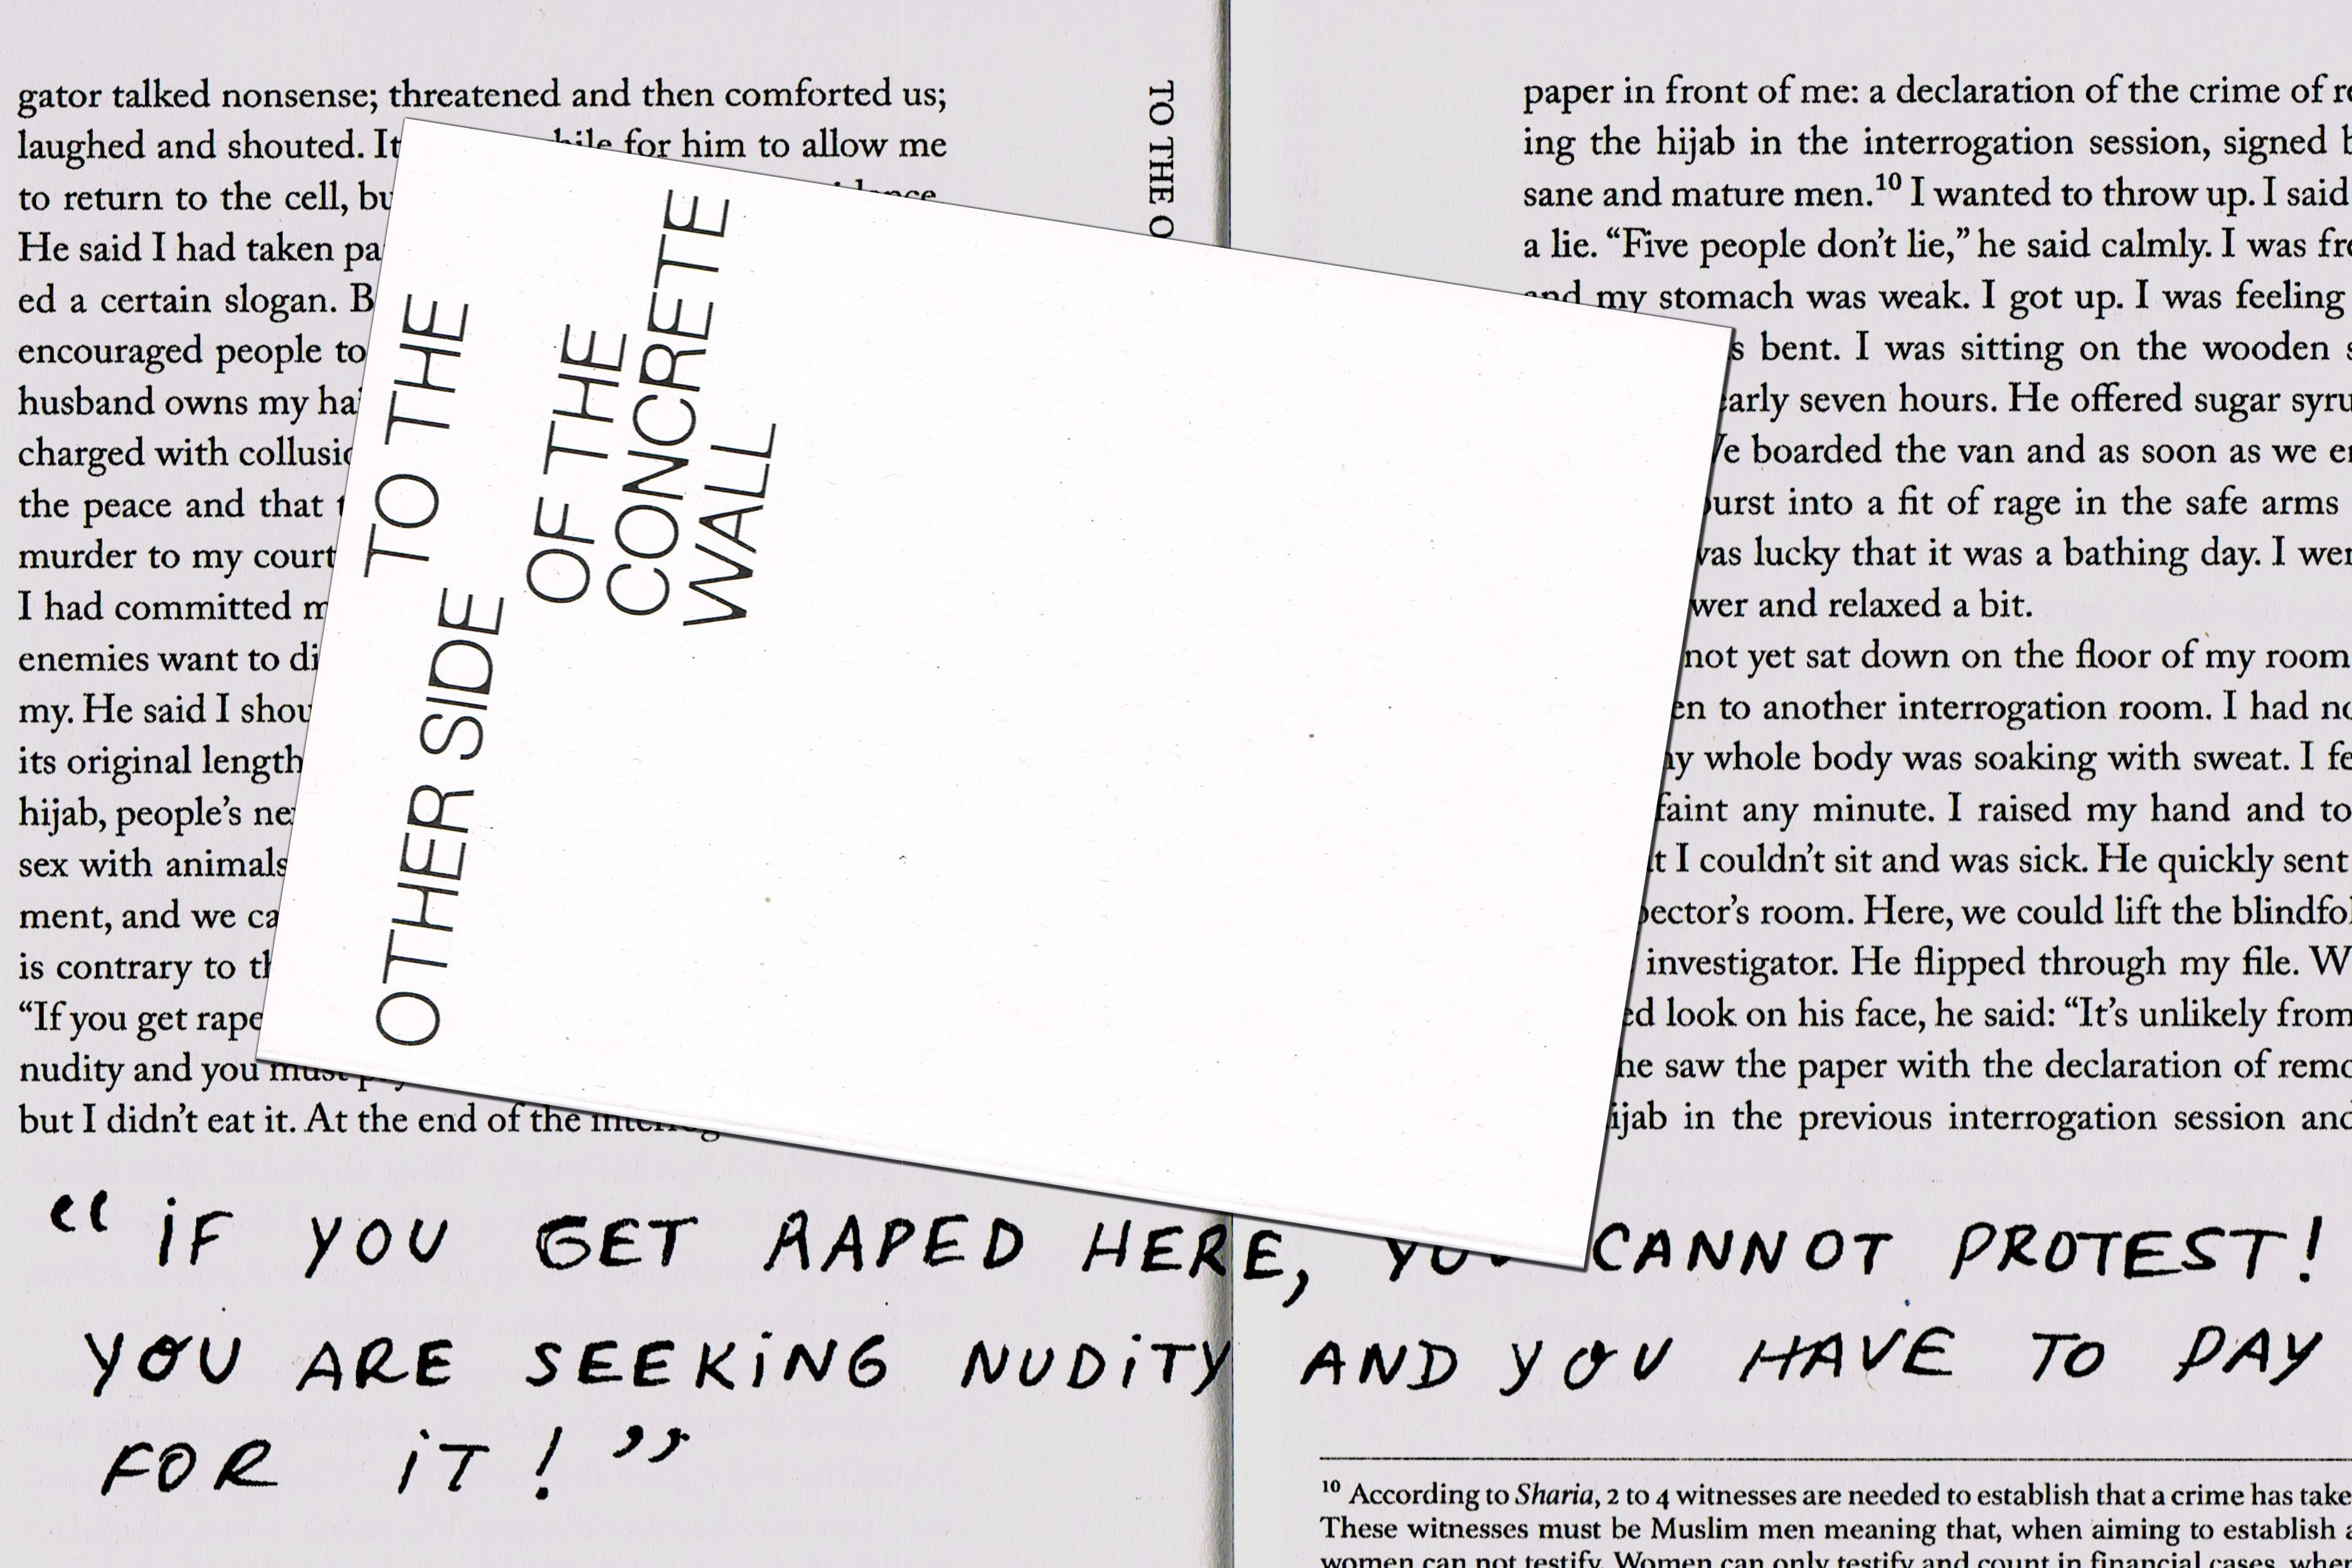 gator talked nonsense; threatened and then comforted us;
laughed and shouted. It for him to allow me
to return to the cell,
He said I had taken
ed a certain slogan.
encouraged people to
husband owns my
charged with
the peace and that
murder to my court
I had committed
enemies want to
my. He said I
its original length
hijab, people's
sex with animals
ment, and we
is contrary to
"If you get
nudity and you must
but I didn't eat it. At the end of the
TO THE
TO THE
OTHER SIDE
OF THE
CONCRETE
WALL
paper in front of me: a declaration of the crime of
ing the hijab in the interrogation session, signed
sane and mature men.¹⁰ I wanted to throw up. I said
a lie. "Five people don't lie," he said calmly. I was
and my stomach was weak. I got up. I was feeling
bent. I was sitting on the wooden
seven hours. He offered sugar
boarded the van and as soon as we
into a fit of rage in the safe arms
was lucky that it was a bathing day. I
and relaxed a bit.
not yet sat down on the floor of my room
to another interrogation room. I had
whole body was soaking with sweat. I
faint any minute. I raised my hand and
I couldn't sit and was sick. He quickly sent
room. Here, we could lift the
investigator. He flipped through my file.
look on his face, he said: "It's unlikely from
he saw the paper with the declaration of
in the previous interrogation session and
"IF YOU GET RAPED HERE, YOU CANNOT PROTEST!
YOU ARE SEEKING NUDITY AND YOU HAVE TO PAY
FOR IT!"
¹⁰ According to Sharia, 2 to 4 witnesses are needed to establish that a crime has
These witnesses must be Muslim men meaning that, when aiming to establish
women can not testify. Women can only testify and count in financial cases,